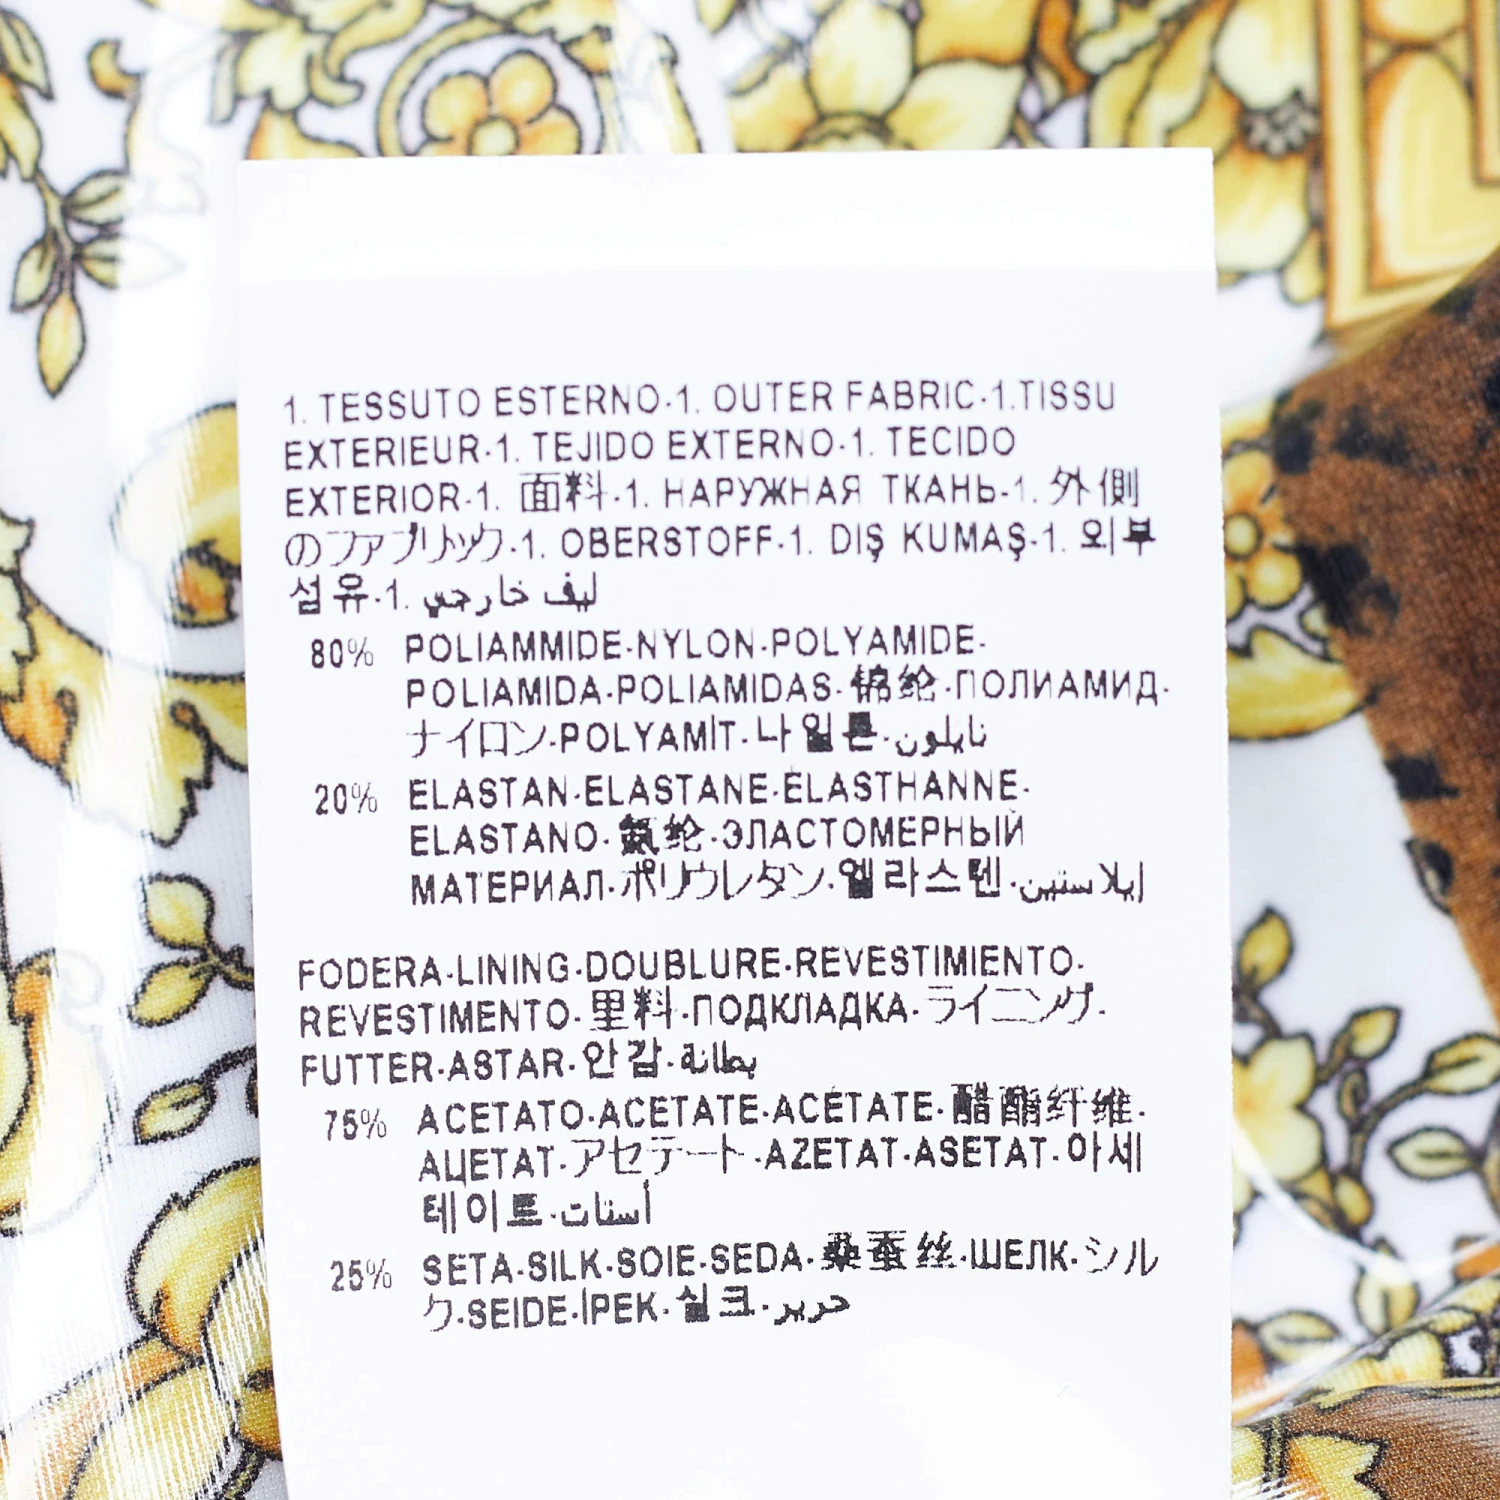 1. TESSUTO ESTERNO-1. OUTER FABRIC-1.TISSU
EXTERIEUR-1. TEJIDO EXTERNO-1. TECIDO
EXTERIOR-1. 面料-1. НАРУЖНАЯ ТКАНЬ-1. 外側
のファブリック-1. OBERSTOFF-1. DIŞ KUMAŞ-1. 외부
섬유-1. ليف خارجي
80% POLIAMMIDE-NYLON-POLYAMIDE-
POLIAMIDA-POLIAMIDAS-锦纶-ПОЛИАМИД-
ナイロン-POLYAMİT-나일론-نايلون
20% ELASTAN-ELASTANE-ÉLASTHANNE-
ELASTANO-氨纶-ЭЛАСТОМЕРНЫЙ
МАТЕРИАЛ-ポリウレタン-엘라스텐-إيلاستين
FODERA-LINING-DOUBLURE-REVESTIMIENTO-
REVESTIMENTO-里料-ПОДКЛАДКА-ライニング-
FUTTER-ASTAR-안감-بطانة
75% ACETATO-ACETATE-ACÉTATE-醋酯纤维-
АЦЕТАТ-アセテート-AZETAT-ASETAT-아세
테이트-أسيتات
25% SETA-SILK-SOIE-SEDA-桑蚕丝-ШЕЛК-シル
ク-SEIDE-İPEK-실크-حرير